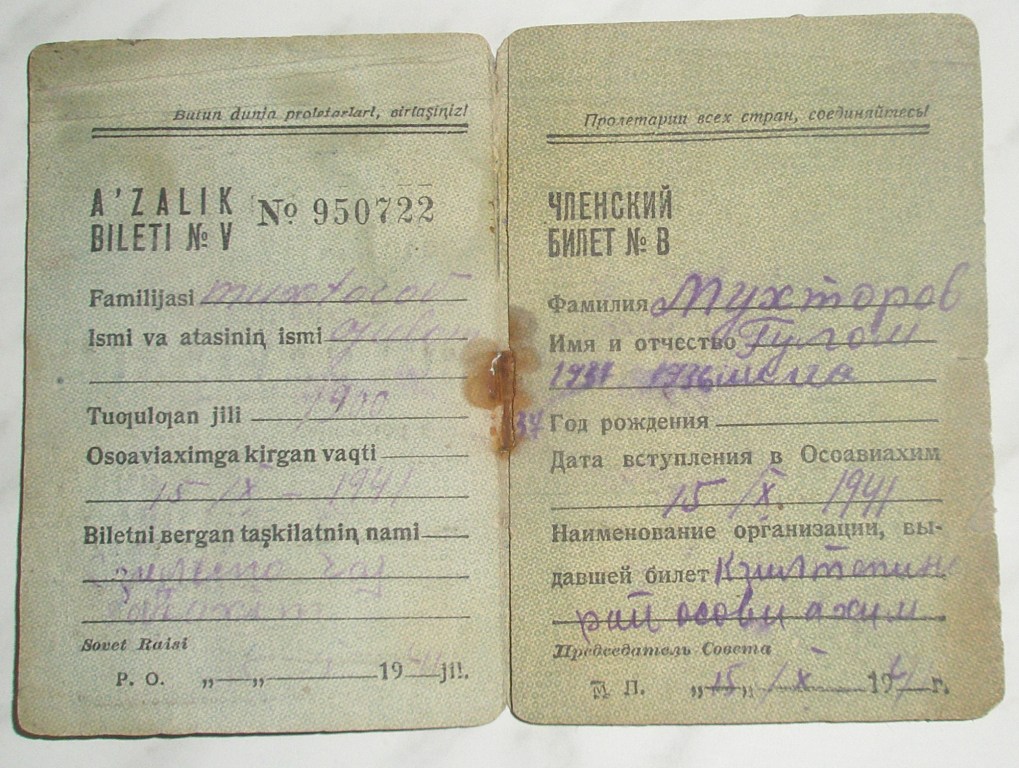 Butun dunja proletarlarі, ʙirlaşiŋiz!
A'ZALIK
BILETI № V
№ 950722
Familijasi muxtorov
Ismi va atasiniŋ ismi
Tuƣulƣan jili 1900
Osoaviaximga kirgan vaqti
15 IX - 1941
Biletni ʙergan taşkilatniŋ nami
Sovet Raisi
P. O. „ “ 19 jil.
Пролетарии всех стран, соединяйтесь!
ЧЛЕНСКИЙ
БИЛЕТ № В
Фамилия Мухторов
Имя и отчество Гулом
Год рождения
Дата вступления в Осоавиахим
15 IX. 1941
Наименование организации, вы-
давшей билет
рай осови ахим
Председатель Совета
М. П. „15“ IX 1941 г.